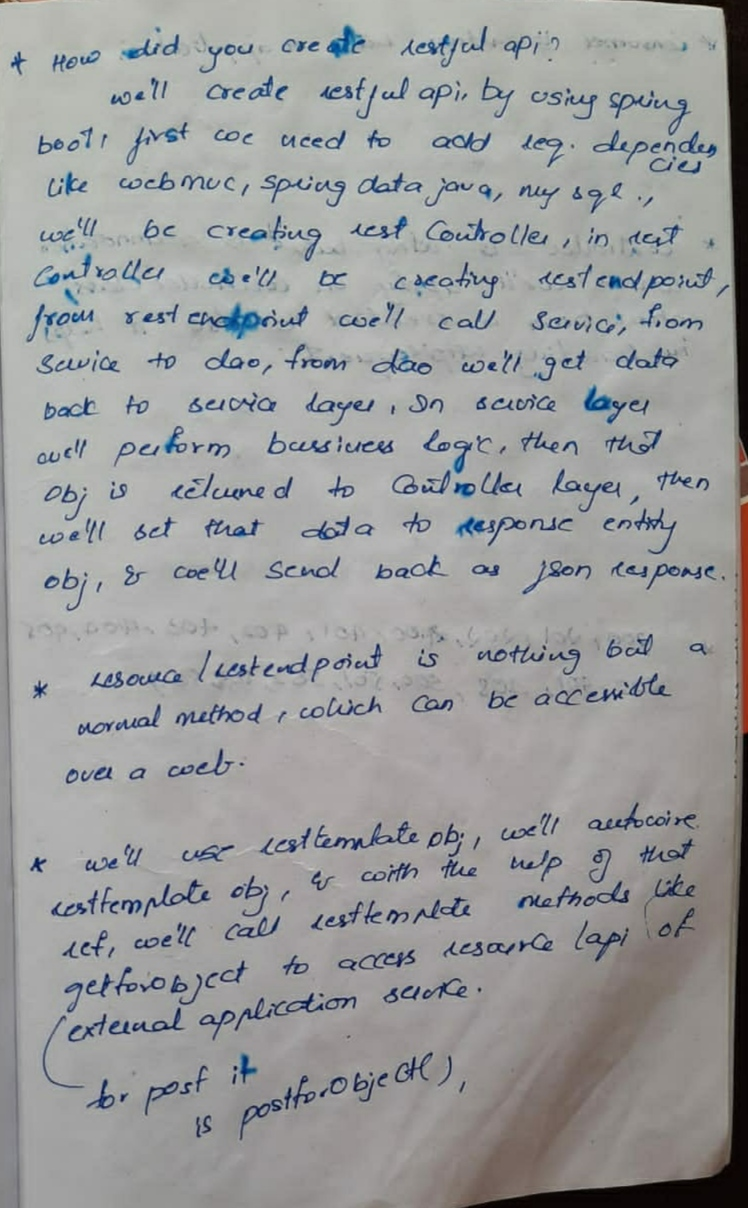 * How did you create restful api?
we'll create restful api, by using spring
boot, first we need to add req. dependencies
like webmvc, spring data java, my sql.,
we'll be creating rest Controller, in rest
Controller we'll be creating rest endpoint,
from rest endpoint we'll call service, from
service to dao, from dao we'll get data
back to service layer, In service layer
we'll perform bussiness logic, then that
obj is returned to Controller layer, then
we'll set that data to response entity
obj, & we'll send back as json response.
* resource/restendpoint is nothing but a
normal method, which can be accessible
over a web.
* we'll use resttemplate obj, we'll autowire
resttemplate obj, & with the help of that
ref, we'll call resttemplate methods like
getforobject to access resource/api of
external application service.
for post it
is postforObject(),